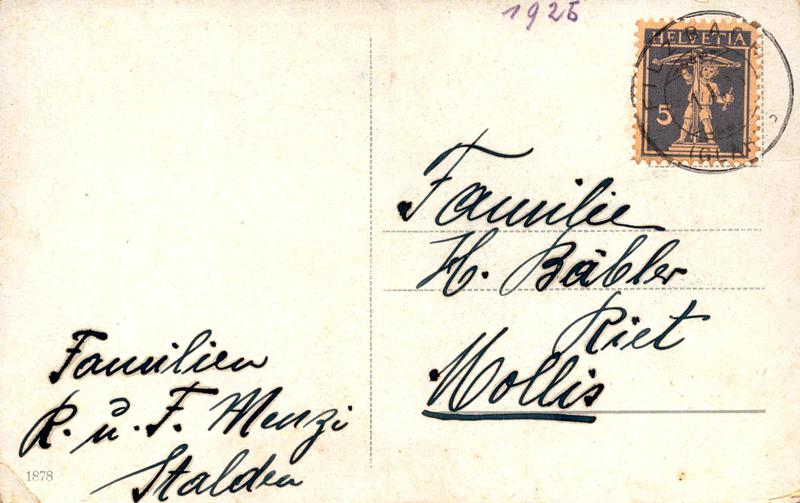 1925
HELVETIA
5
FILZBACH
(GLARUS)
Familie
H. Bäbler
Riet
Mollis
Familien
R. u. F. Menzi
Stalden
1878